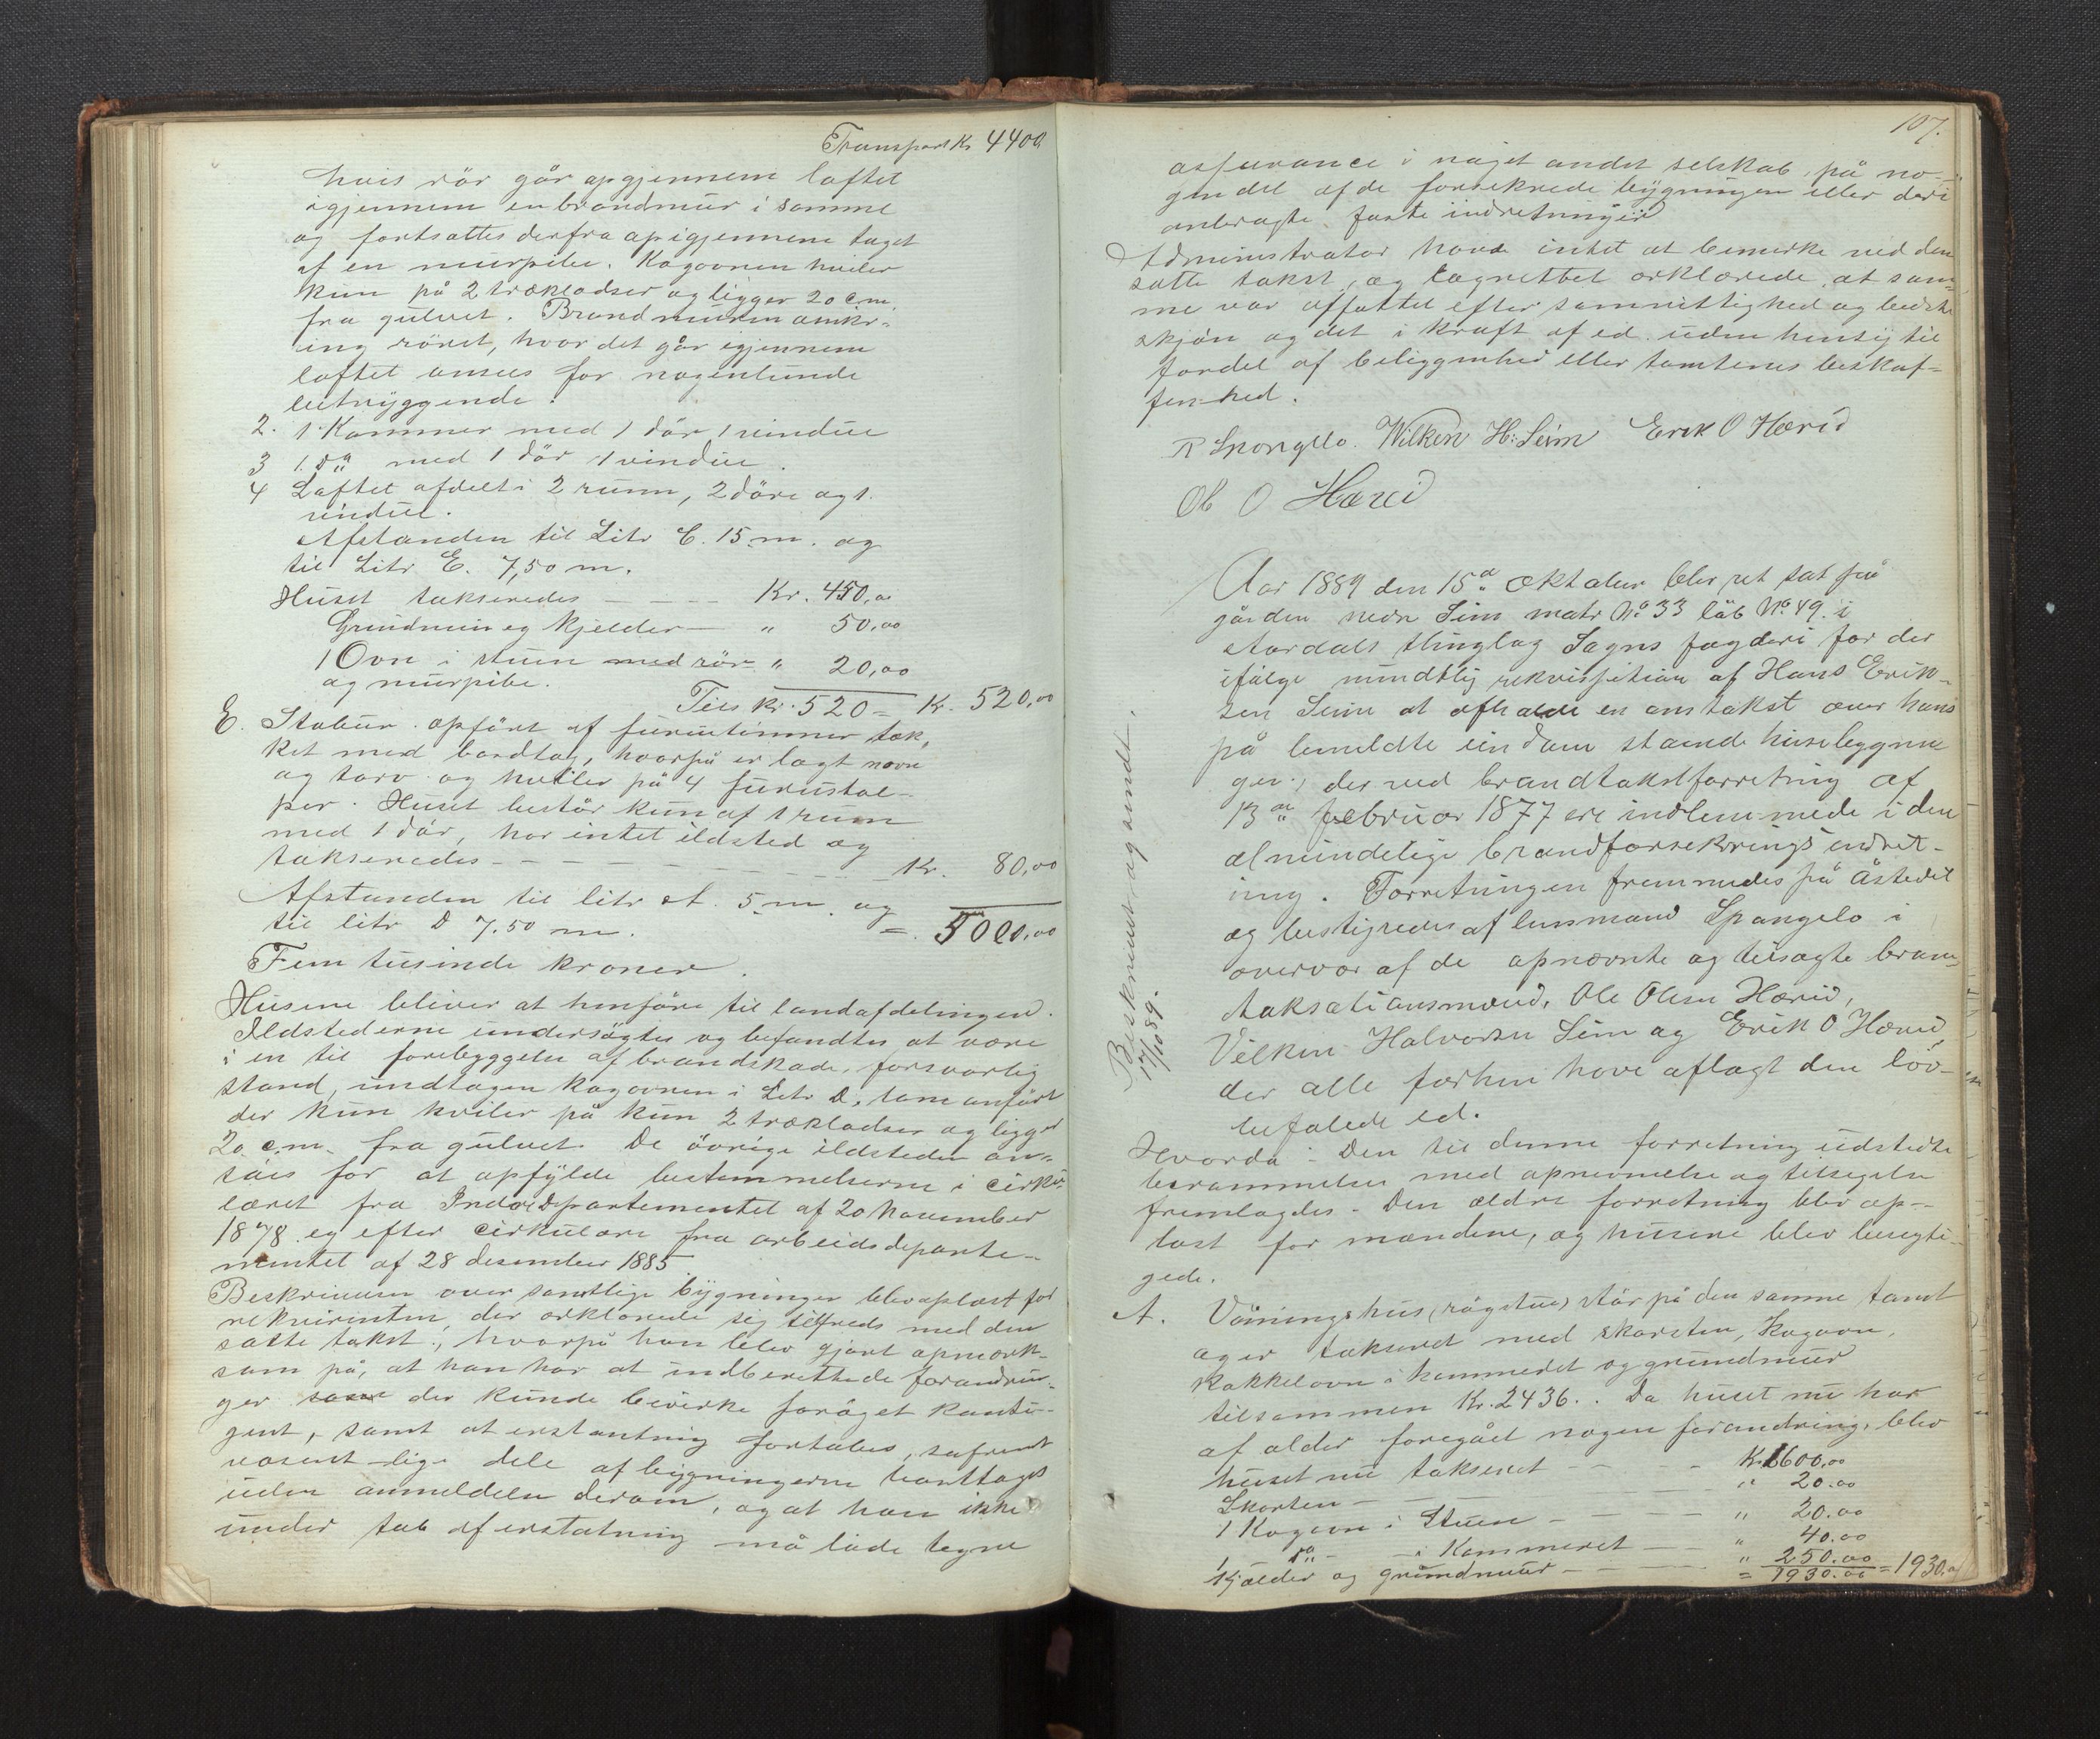 Transport Kr 4400
hvis rör går opgjennem loftet
igjennem en brandmur i samme
og fortsættes derfra op igjennem taget
af en murpibe. Kogovnen hviler
kun på 2 trækladser og ligger 20 c.m.
fra gulvet. Brandmuren omkr-
ing röret, hvor det går igjennem
loftet ansees for nogenlunde
betryggende.
2. 1 Kammer med 1 dör 1 vindue
3 1 do med 1 dör 1 vindue.
4 Loftet afdelt i 2 rum, 2 döre og 1
vindue.
Afstanden til Litr C. 15 m. og
til Litr E. 7,50 m.
Huset takseredes — — — Kr. 450,00
Grundmur og kjelder — " 50,00
1 Ovn i stuen med rör " 20,00
og murpibe.
Tils kr. 520 = Kr. 520,00
E. Stabur opfört af furutimmer tæk-
ket med bordtag, hvorpå er lagt næver
og torv og hviler på 4 furustol-
per. Huset består kun af 1 rum
med 1 dör, har intet ildsted og
takseredes — — — — — — Kr. 80,00
Afstanden til litr A. 5 m. og
til litr D 7.50 m. = 5000,00
Fem tusinde kroner.
Husene bliver at henföre til landafdelingen.
Ildstederne undersögtes og befandtes at være
i en til forebyggelse af brandskade, forsvarlig
stand, undtagen kogovnen i Litr D, som anfört
der kun hviler på kun 2 trækladser og ligger
20 c.m. fra gulvet. De övrige ildsteder an-
såes for at opfylde bestemmelserne i cirku-
læret fra Indredepartementet af 20 November
1878 og efter cirkulære fra arbeidsdeparte-
mentet af 28 desember 1885
Beskrivelsen over samtlige bygninger blev oplæst for
rekvirenten, der erklærede sig tilfreds med den
satte takst, hvorpå han blev gjort opmærk-
som på, at han har at indberette de forandrin-
ger som der kunde bevirke foröget kontin-
gent, samt at erstantning fortabes, såfremt
væsent-lige dele af bygningerne borttages
uden anmeldelse derom, og at han ikke
under tab af erstatning må lade tegne
107.
assurance i noget andet selskab på no-
gen del af de forsekrede bygninger eller deri
anbragte faste indretninger
Administrator havde intet at bemerke ved den
satte takst, og lagrettet erklærede, at sam-
me var affattet efter samvittighed og bedste
skjön og det i kraft af ed uden hensyn til
fordel af beliggenhed eller tomtenes beskaf-
fenhed.
R Spongelo. Wilken H: Seim Erik O Hæreid
Ole O Hæreid
Aar 1889 den 15de Oktober blev ret sat på
gården nedre Seim matr No 33 löb No 49. i
Aardals thinglag Sogns fogderi for der
ifölge mundtlig rekvisition af Hans Erik-
sen Seim at afholde en omtakst over hans
på bemeldte eiendom stående husebygnin-
ger, der ved brandtakstforretning af
13de februar 1877 ere indlemmede i den
almindelige brandforsekrings indret-
ning. Forretningen fremmedes på åstedet
og bestyredes af lensmand Spangelo i
overvær af de opnævnte og tilsagte brand-
taksationsmænd, Ole Olsen Hæreid,
Vilken Halvorsen Seim og Erik O Hæreid
der alle forhen have aflagt den lov-
befalede ed.
Hvorda: Den til denne forretning udstedte
berammelse med opnevnelse og tilsigelse
fremlagdes. Den ældre forretning blev op-
læst for mændene, og husene blev besigti-
gede.
A. Våningshus (rögstue) står på den samme tomt
og er takseret med skorsten, kogovn,
kakkelovn i kammeret og grundmur
tilsammen Kr. 2436. Da huset nu har
af alder foregået nogen forandring, blev
huset nu takseret — — — Kr. 1600,00
Skorsten — — — — " 20.00
1 Kogovn i Stuen — — — — " 20.00
1 do — i Kammeret — — " 40.00
Kjælder og grundmur — — — " 250.00
= 1930.00 = 1930.00
Beskrevet og sendt
17/10 89.